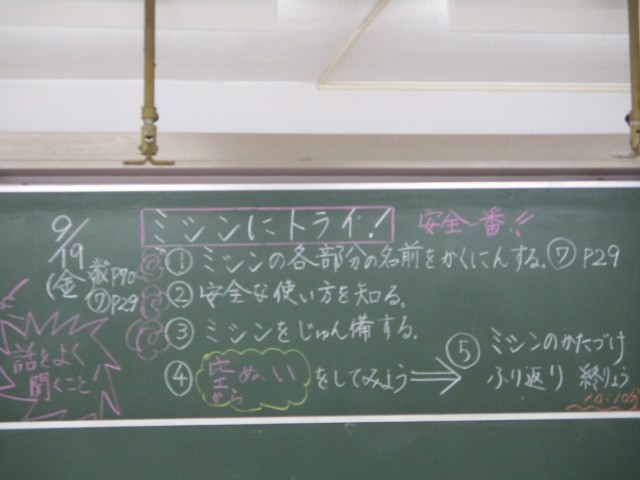 9/19
(金)
家P70
⑦P29
ミシンにトライ!
安全一番!!
① ミシンの各部分の名前をかくにんする。⑦ P29
② 安全な使い方を知る。
③ ミシンをじゅん備する。
④ 空ぬいからをしてみよう ⇒
⑤ ミシンのかたづけ
ふり返り 終りょう
話をよく
聞くこと!